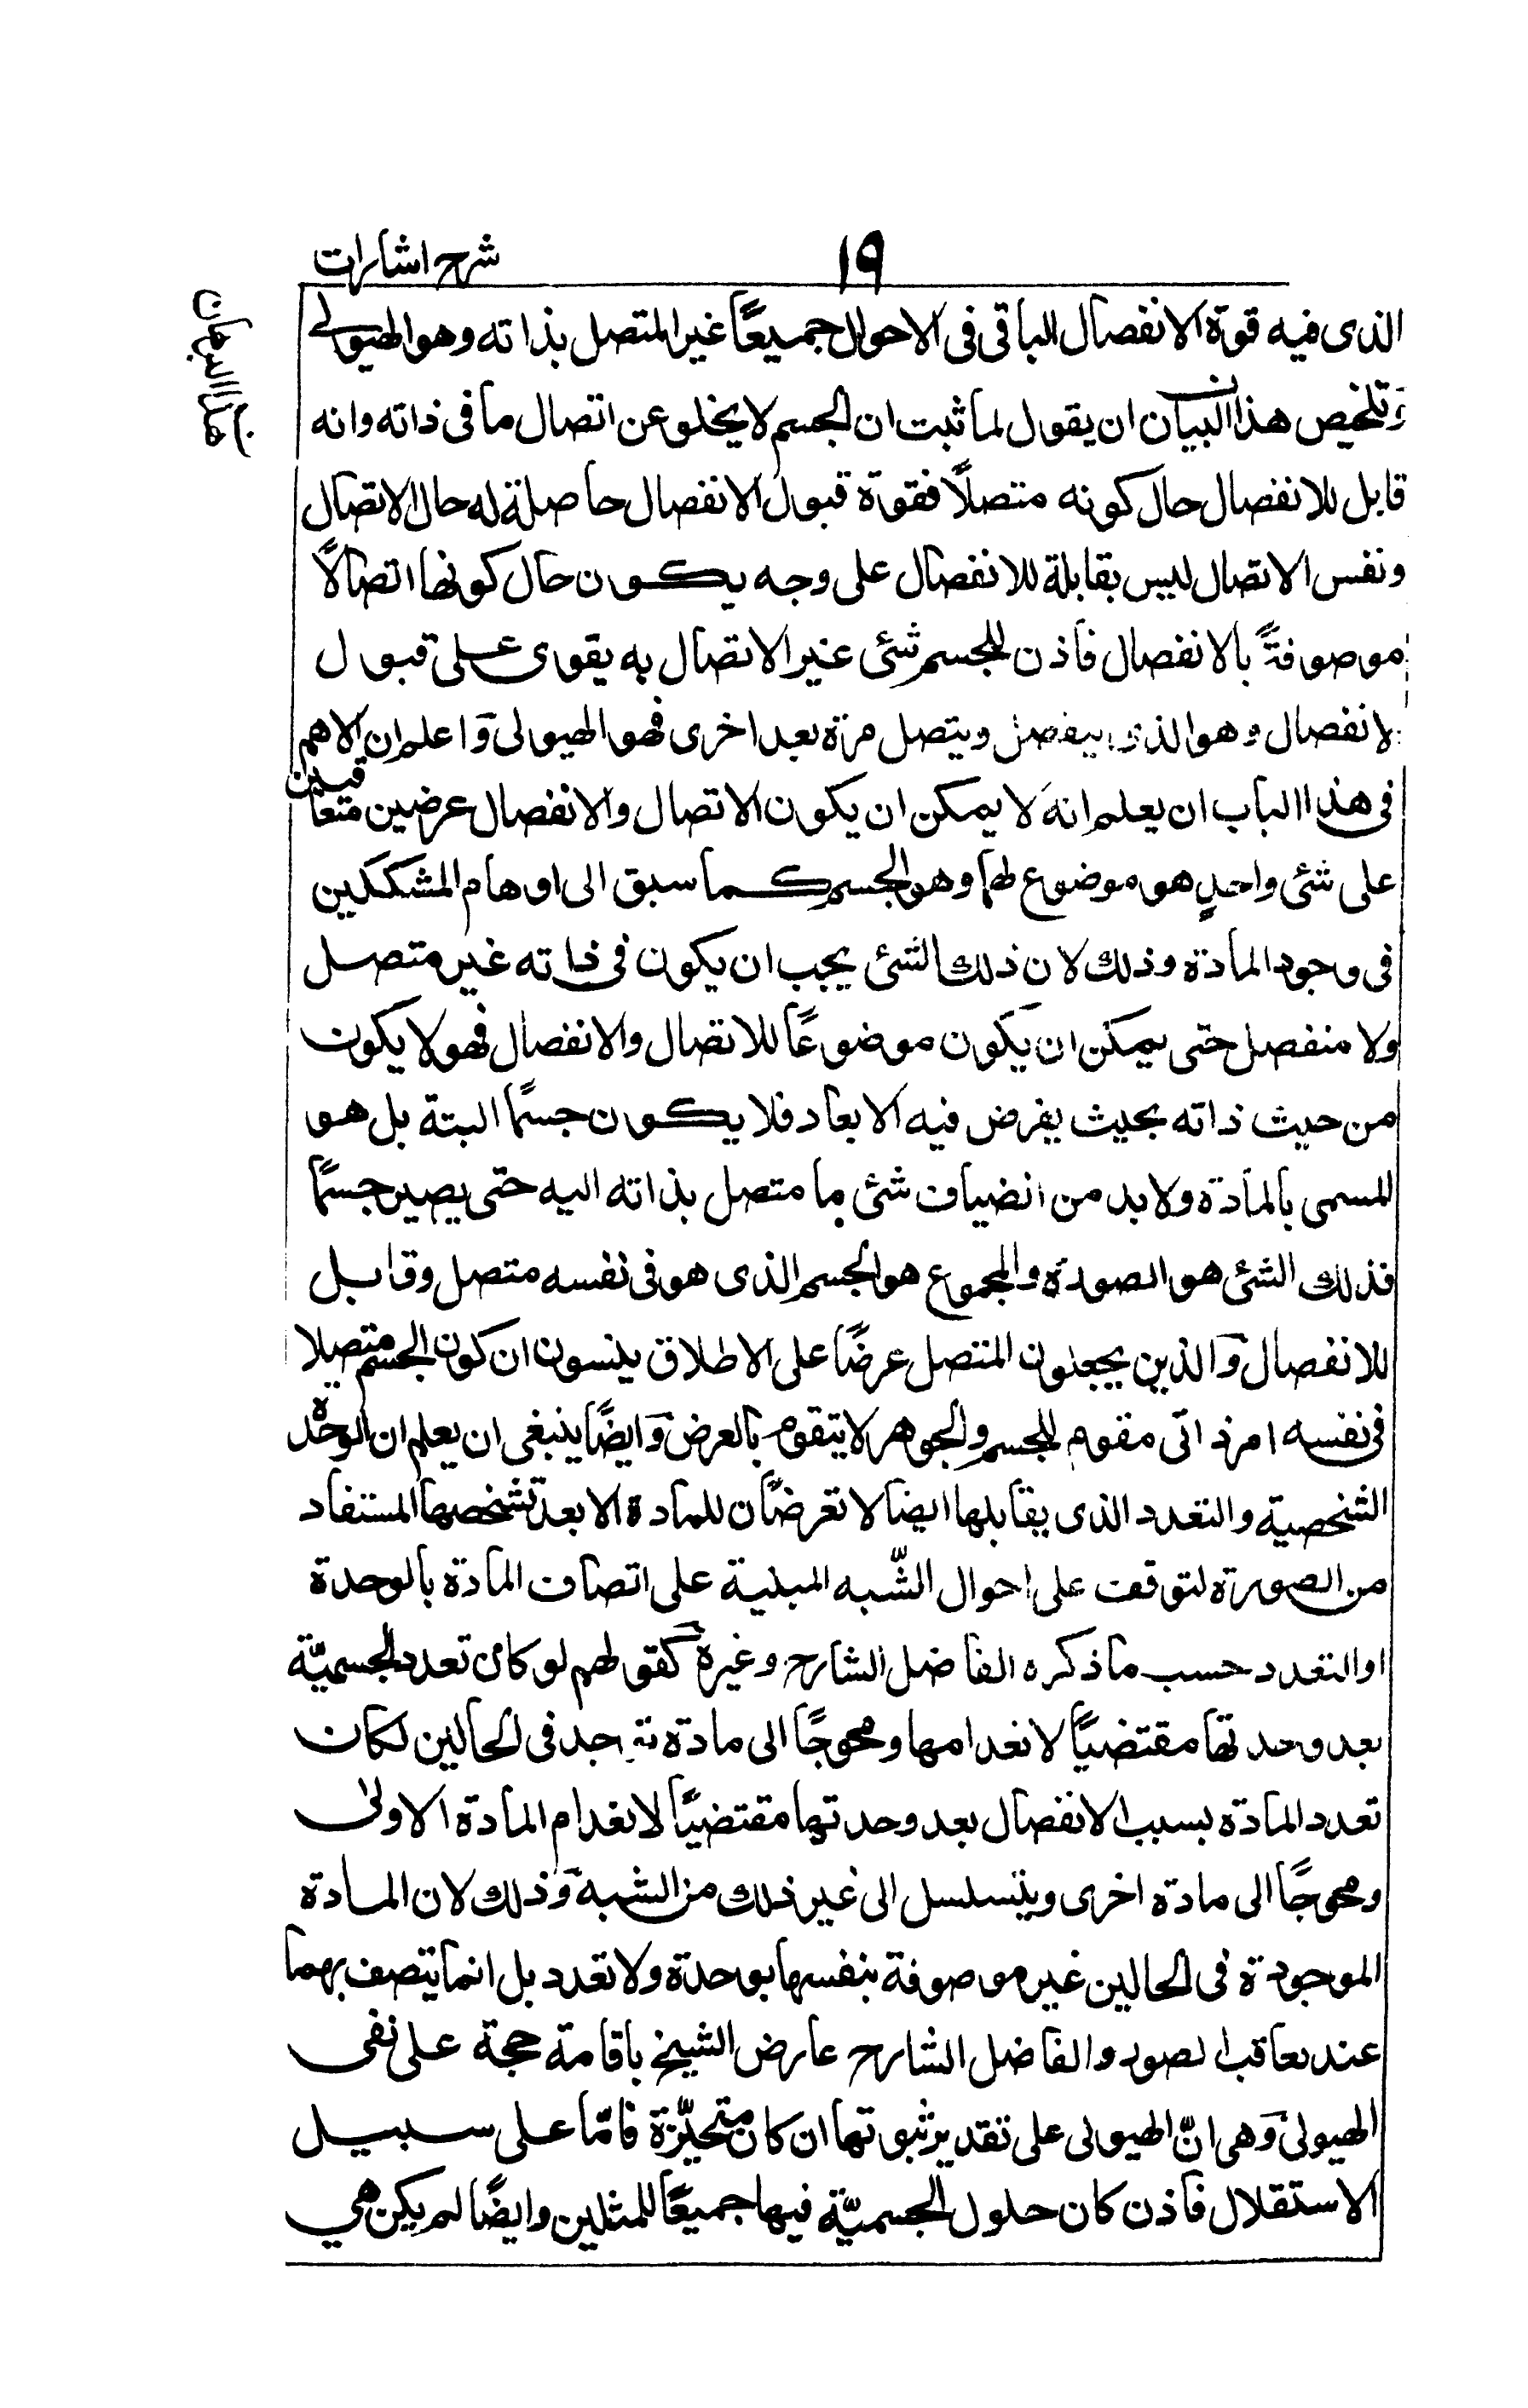 ١٩
شرح اشارات
الذى فيه قوة الانفصال الباقى فى الاحوال جميعًا غير المتصل بذاته وهو الهيولى
وتلخيص هذا البيان ان يقول لما ثبت ان الجسم لا يخلو عن اتصال ما فى ذاته وانه
قابل للانفصال حال كونه متصلًا فقوة قبول الانفصال حاصلة له حال الاتصال
ونفس الاتصال ليس بقابلة للانفصال على وجه يكون حال كونها اتصالًا
موصوفةً بالانفصال فاذن للجسم شئ غير الاتصال به يقوى على قبول
لانفصال وهو الذى ينفصل ويتصل مرة بعد اخرى فهو الهيولى وَاعلم ان الاهم
فى هذا الباب ان يعلم انه لا يمكن ان يكون الاتصال والانفصال عرضين متعاقبين
على شئ واحدٍ هو موضوع لهما وهو الجسم كما سبق الى اوهام المشككين
فى وجود المادة وذلك لان ذلك الشئ يجب ان يكون فى ذاته غير متصل
ولا منفصل حتى يمكن ان يكون موضوعًا للاتصال والانفصال فهو لا يكون
من حيث ذاته بحيث يفرض فيه الابعاد فلا يكون جسمًا البتة بل هو
المسمى بالمادة ولا بد من انضياف شئ ما متصل بذاته اليه حتى يصير جسمًا
فذلك الشئ هو الصورة والمجموع هو الجسم الذى هو فى نفسه متصل وقابل
للانفصال وَالذين يجعلون المتصل عرضًا على الاطلاق ينسون ان كون الجسم متصلا
فى نفسه امر ذاتى مقوم للجسم والجوهر لا يتقوم بالعرض وَايضًا ينبغى ان يعلم ان الوحدة
الشخصية والتعدد الذى يقابلها ايضا لا تعرضان للمادة الا بعد تشخصها المستفاد
من الصورة لتوقف على احوال الشّبه المبنية على اتصاف المادة بالوحدة
او التعدد حسب ما ذكره الفاضل الشارح وغيره كقولهم لو كان تعدد الجسميّة
بعد وحدتها مقتضيًا لانعدامها ومحوجًا الى مادة توجد فى الحالين لكان
تعدد المادة بسبب الانفصال بعد وحدتها مقتضيًا لانعدام المادة الاولى
ومحوجًا الى مادة اخرى ويتسلسل الى غير ذلك من الشبه وَذلك لان المادة
الموجودة فى الحالين غير موصوفة بنفسها بوحدة ولا تعدد بل انما يتصف بهما
عند تعاقب الصور والفاضل الشارح عارض الشيخ باقامة حجة على نفى
الهيولى وَهى انّ الهيولى على تقدير ثبوتها ان كان متحيّزة فامّا على سبيل
الاستقلال فاذن كان حلول الجسميّة فيها جميعًا للمثلين وايضًا لم يكن هي